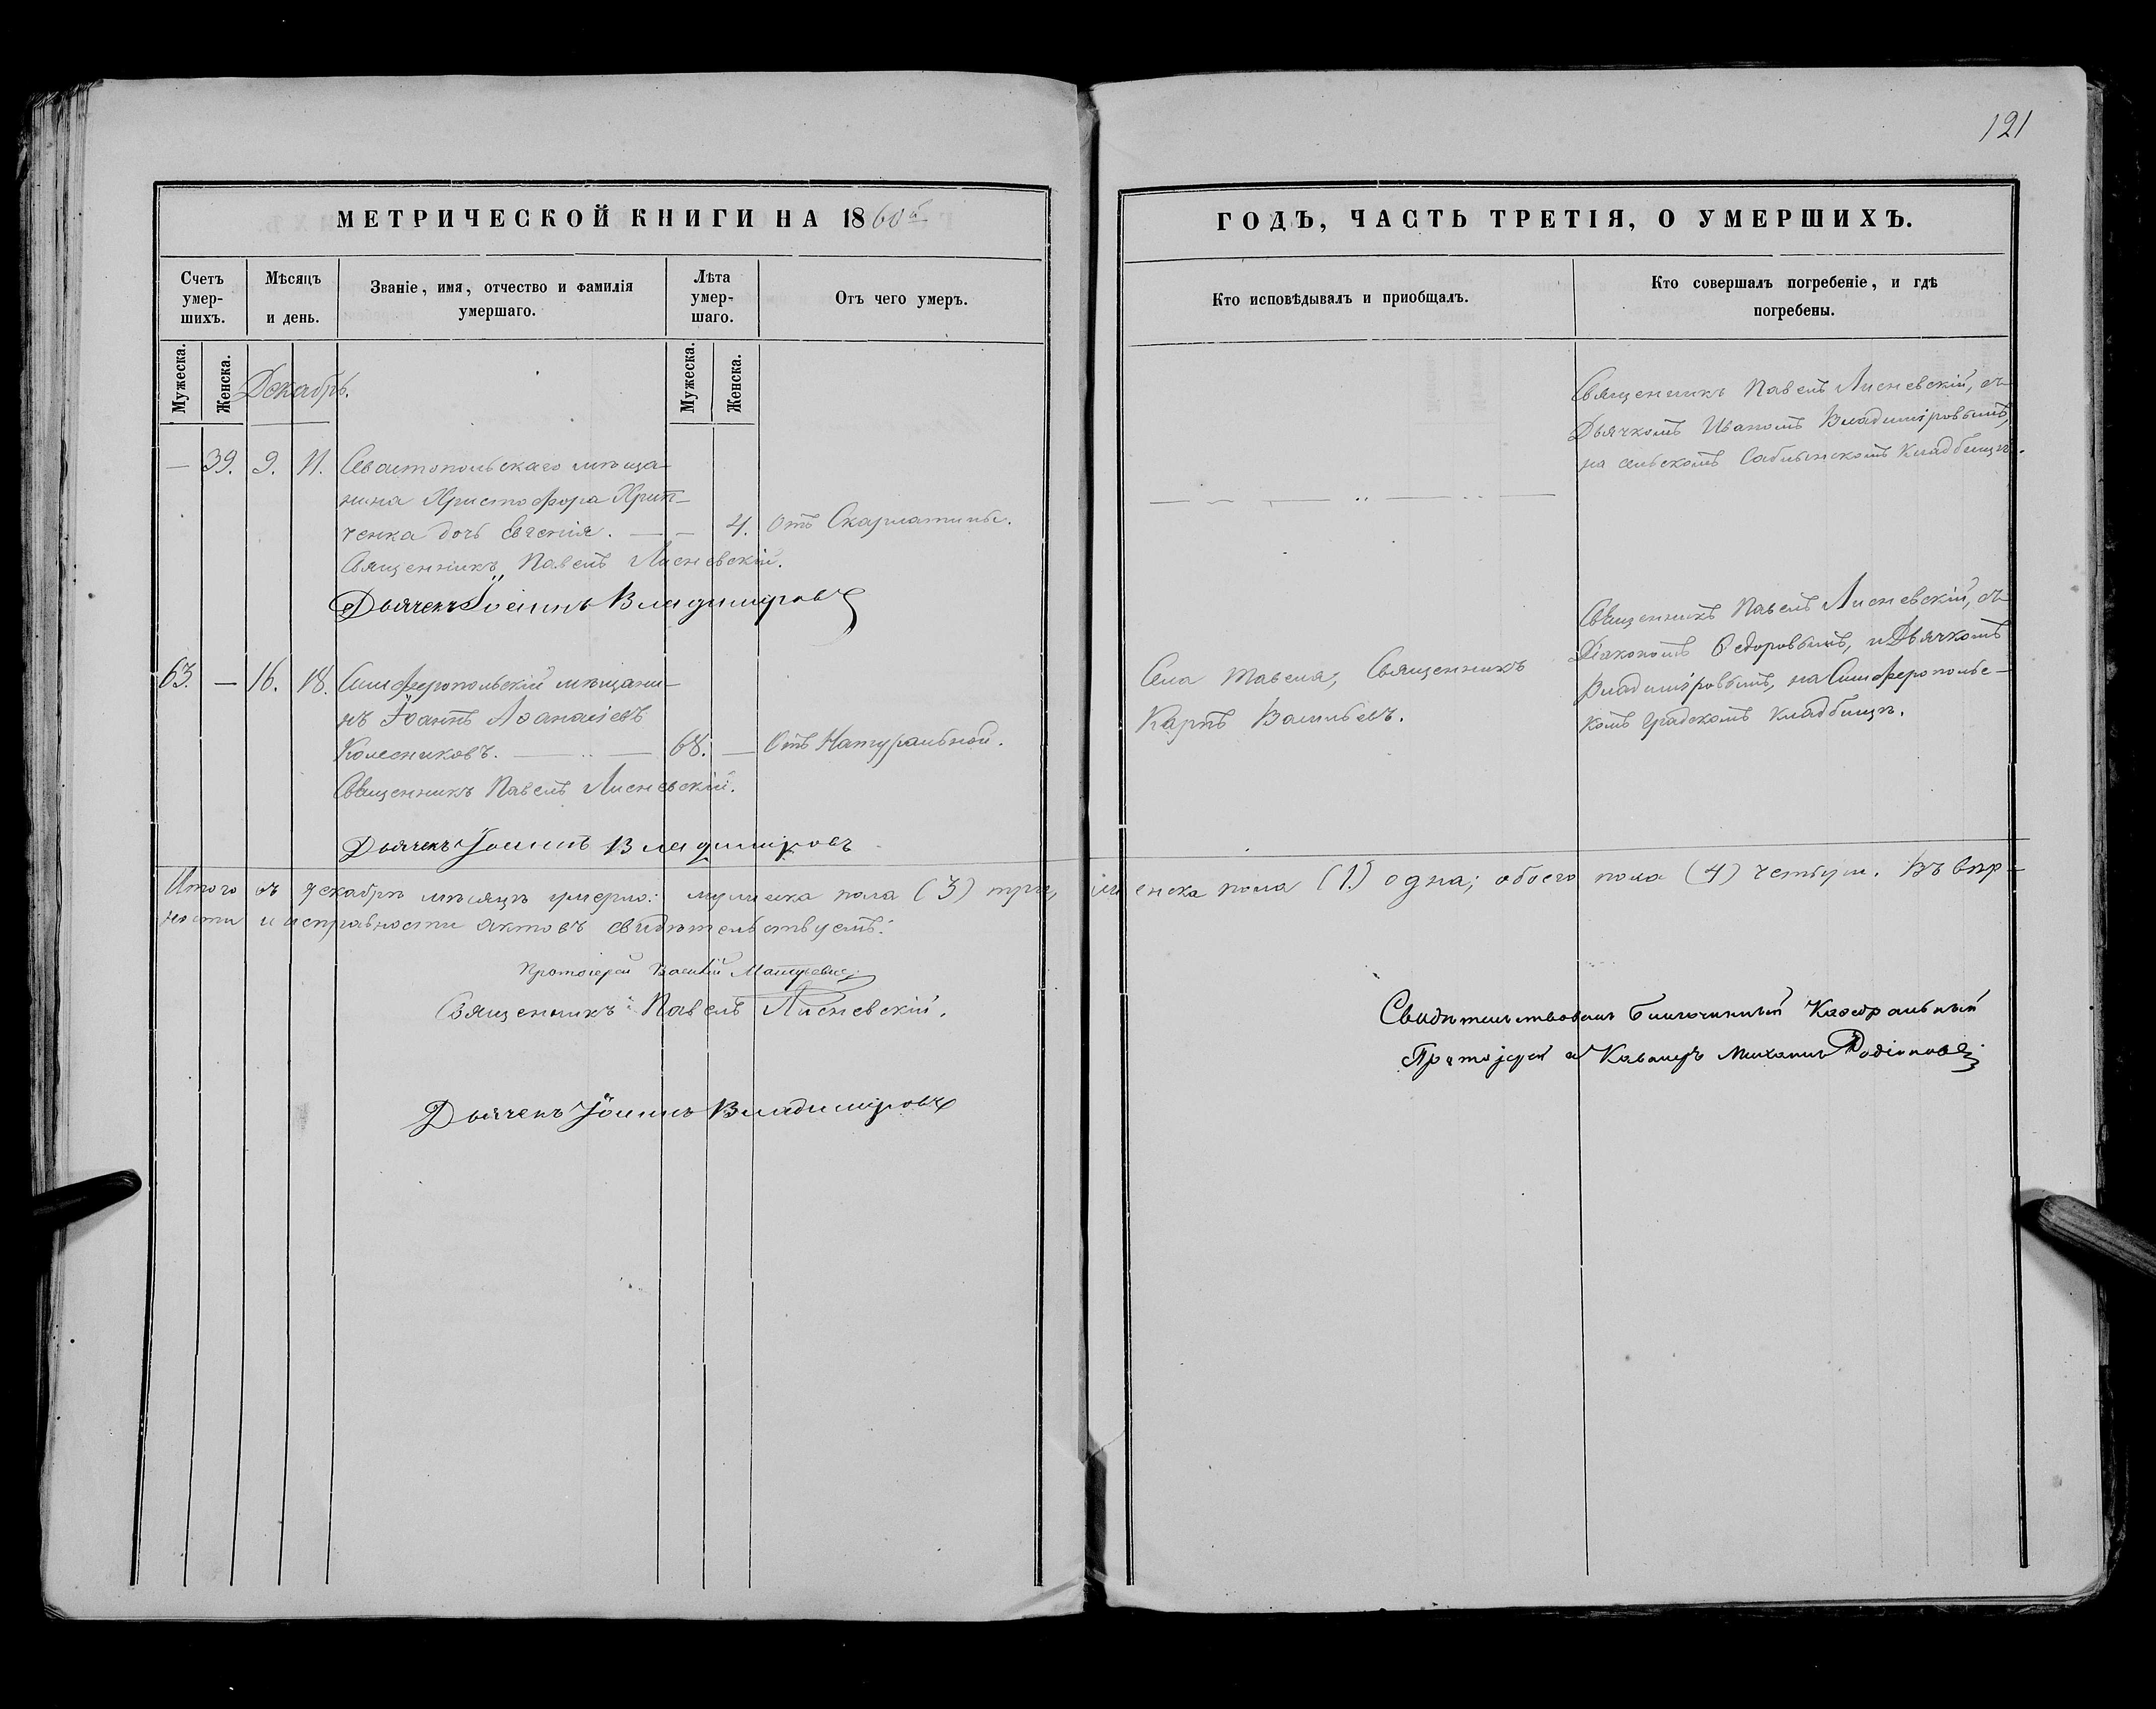 121
МЕТРИЧЕСКОЙ КНИГИ НА 1860й
Счетъ умер-шихъ.
Мѣсяцъ и день.
Званіе, имя, отчество и фамилія умершаго.
Лѣта умер-шаго.
Отъ чего умеръ.
Мужеска.
Женска.
Мужеска.
Женска.
Декабрь.
— 39. 9. 11. Севастопольскаго мѣща-
нина Христофора
ченка дочь Евгенія. — — 4. Отъ Скарлатины.
Священникъ Павелъ Лисневскій.
Дьячекъ Іоаннъ Владиміровъ
63. — 16. 18. Симферопольскій мѣщани-
нъ Іоаннъ Аѳанасіевъ
Колесниковъ. — 68. — Отъ Натуральной.
Священникъ Павелъ Лисневскій.
Дьячекъ Іоаннъ Владиміровъ
ГОДЪ, ЧАСТЬ ТРЕТІЯ, О УМЕРШИХЪ.
Кто исповѣдывалъ и пріобщалъ.
Кто совершалъ погребеніе, и гдѣ
погребены.
Священникъ Павелъ Лисневскій, съ
Дьячкомъ Иваномъ Владиміровымъ,
на сельскомъ Саблынскомъ Кладбищѣ.
Села Тавеля, Священникъ
Карпъ Васильевъ.
Священникъ Павелъ Лисневскій, съ
Діакономъ Ѳедоровымъ, и Дьячкомъ
Владиміровымъ, на Симферопольс-
комъ градскомъ кладбищѣ.
Итого въ декабрѣ мѣсяцѣ умерло: мужеска пола (3) три, женска пола (1.) одна; обоего пола (4) четыри. Въ вѣр-
ности и исправности актовъ свидѣтельствуемъ:
Протоіерей Василій
Священникъ Павелъ Лисневскій.
Дьячекъ Іоаннъ Владиміровъ
Свидѣтельствовалъ Благочинный Каѳедральный
Протоіерей и Кавалеръ Михаилъ Родіоновъ